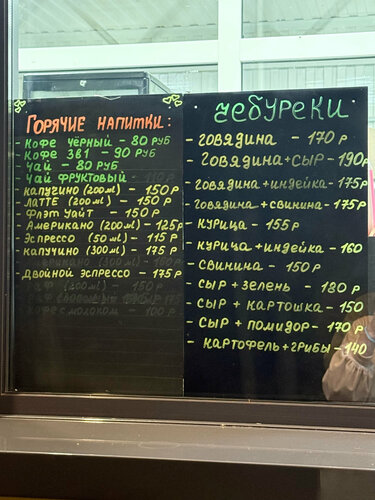 ГОРЯЧИЕ НАПИТКИ:
- КОФЕ ЧЁРНЫЙ - 80 РУБ
- КОФЕ 3В1 - 90 РУБ
- ЧАЙ - 80 РУБ
- ЧАЙ ФРУКТОВЫЙ
- КАПУЧИНО (200мл) - 150 Р
- ЛАТТЕ (200мл) - 150 Р
- ФЛЭТ УАЙТ - 150 Р
- АМЕРИКАНО (200мл) - 125 Р
- ЭСПРЕССО (50мл) - 115 Р
- КАПУЧИНО (300мл) - 175 Р
- АМЕРИКАНО (300мл) - 
- ДВОЙНОЙ ЭСПРЕССО - 175 Р
- РАФ (200мл) - 150 Р
- КОФЕ С МОЛОКОМ - 100 Р
ЧЕБУРЕКИ
- ГОВЯДИНА - 170 Р
- ГОВЯДИНА+СЫР - 190Р
- ГОВЯДИНА+ИНДЕЙКА - 175Р
- ГОВЯДИНА+СВИНИНА - 175Р
- КУРИЦА - 155Р
- КУРИЦА+ИНДЕЙКА - 160
- СВИНИНА - 150Р
- СЫР+ЗЕЛЕНЬ - 180 Р
- СЫР + КАРТОШКА - 150
- СЫР + ПОМИДОР - 170 Р
- КАРТОФЕЛЬ+ГРИБЫ - 140